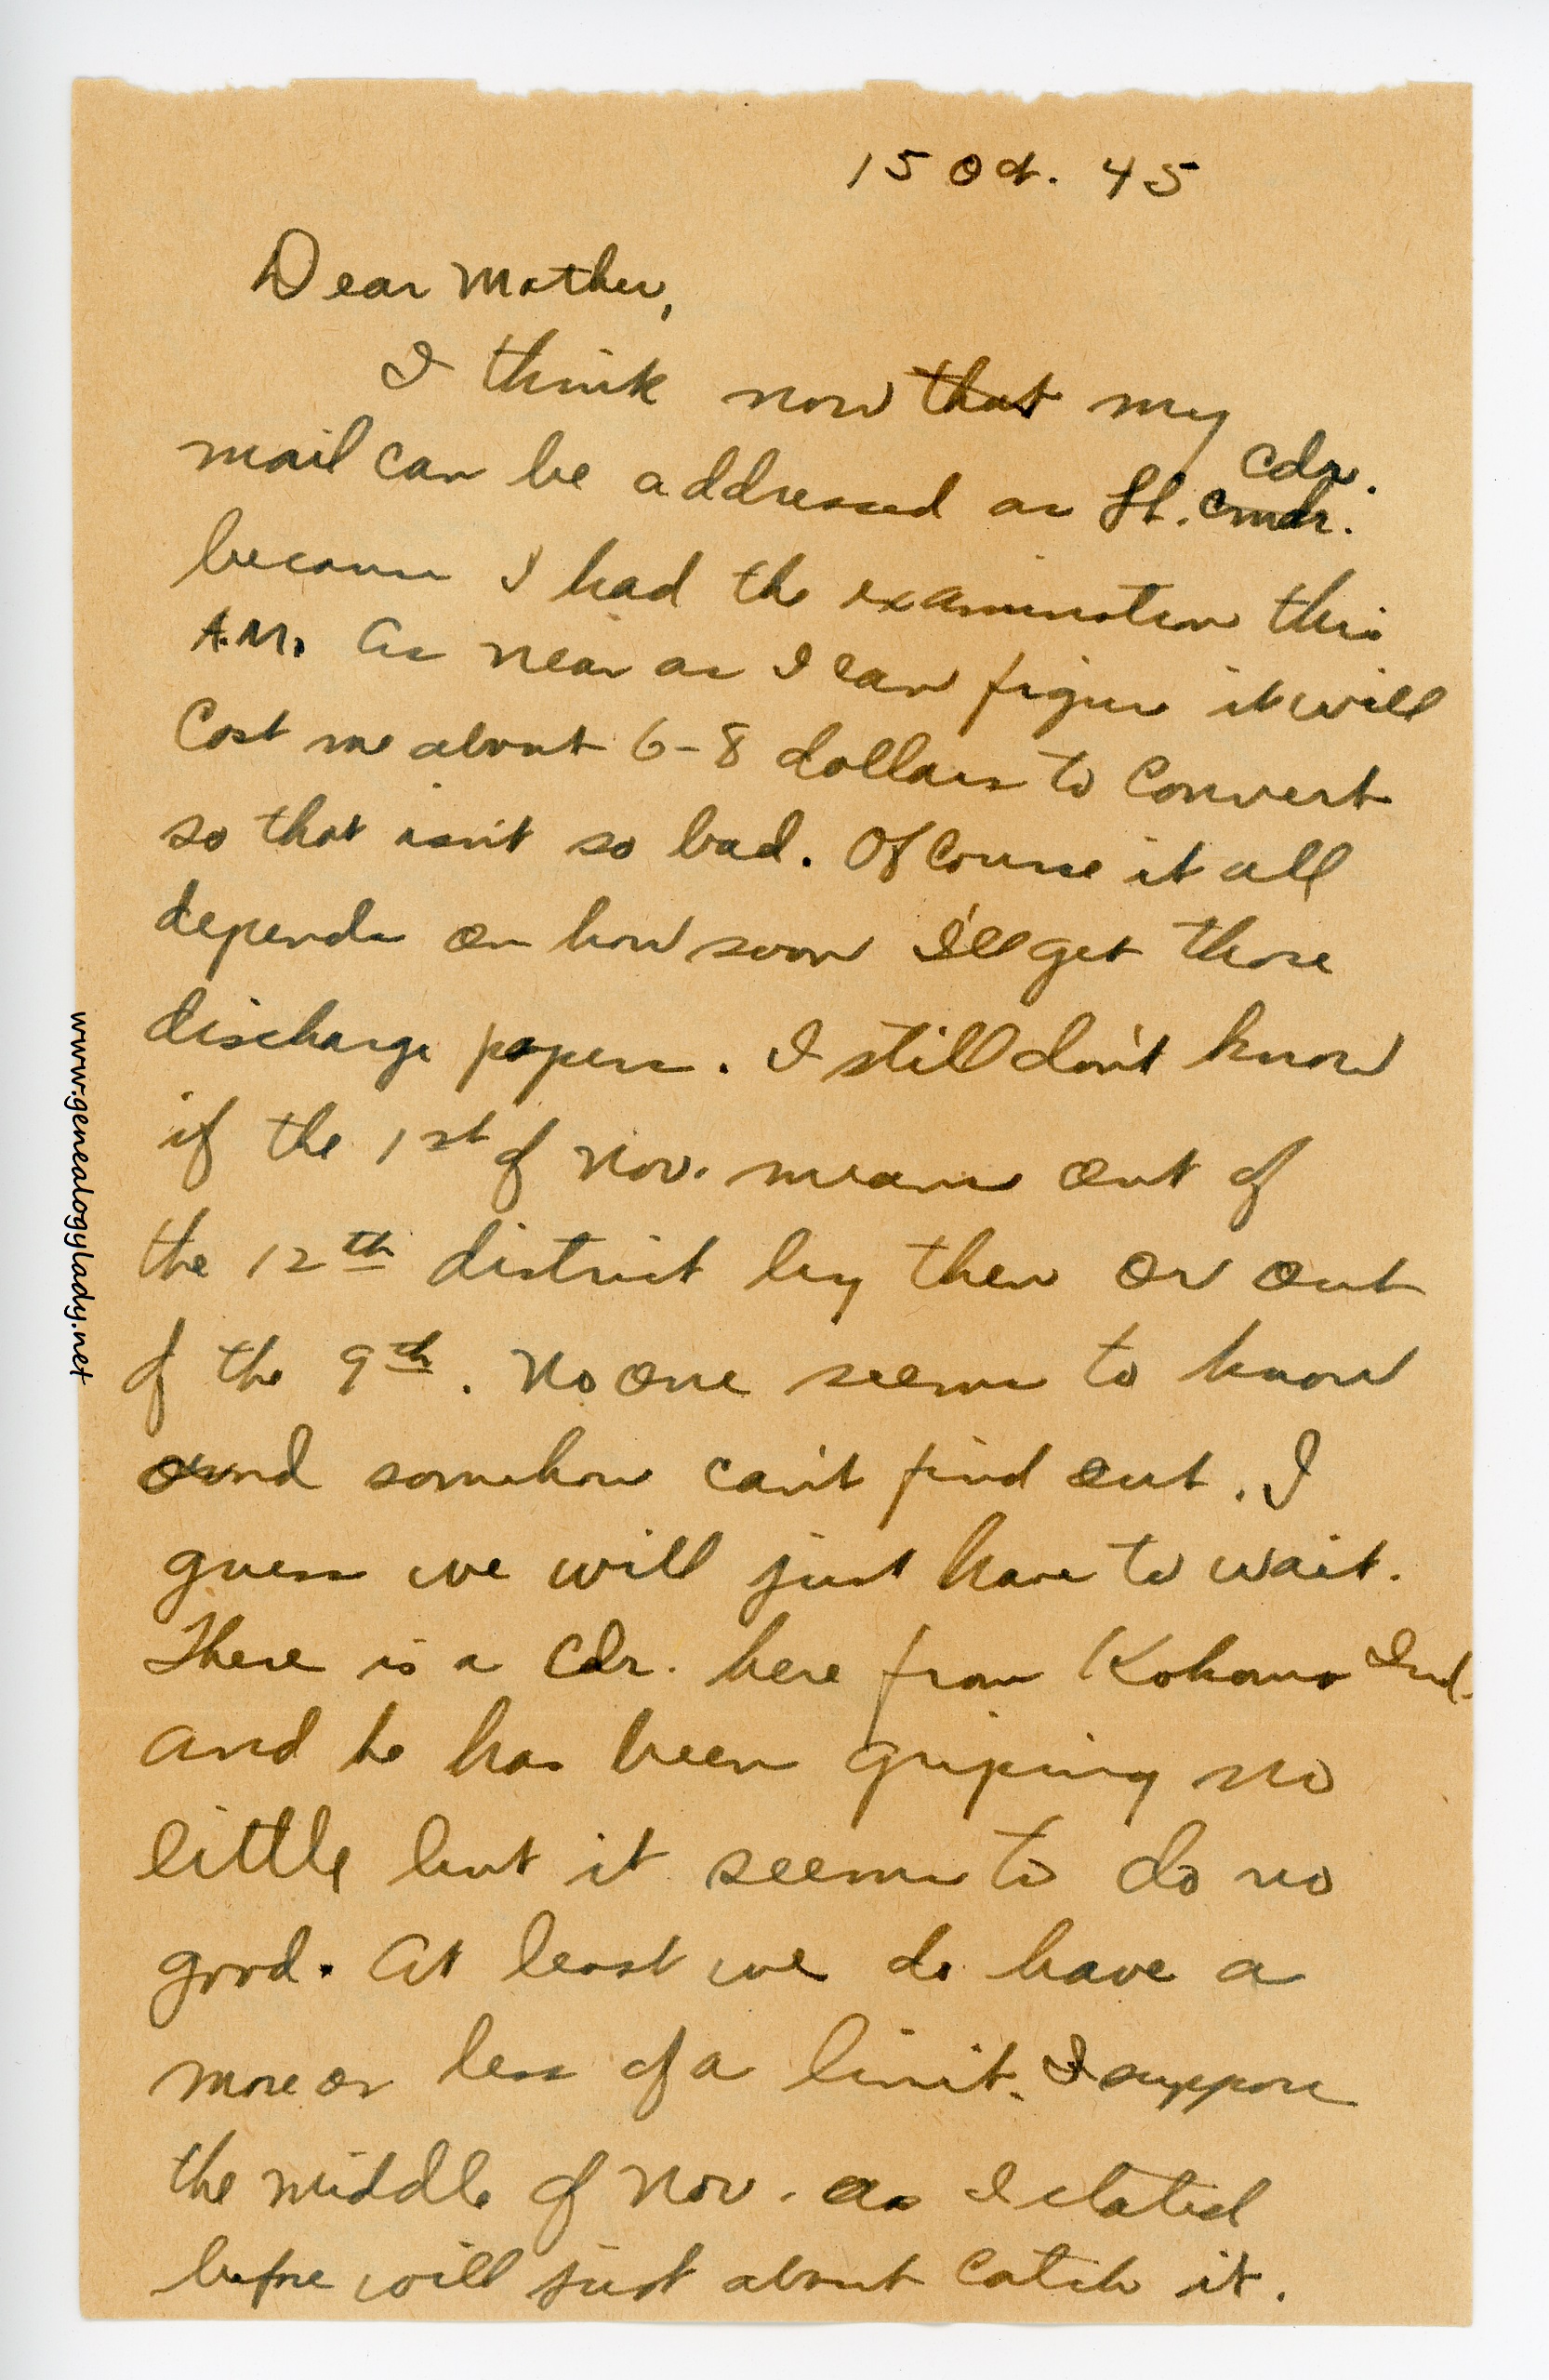 15 Oct. 45
Dear Mother,
I think now that my
mail can be addressed as Lt. Cmdr. Cdr.
because I had the examination this
A.M. As near as I can figure it will
cost me about 6-8 dollars to convert
so that isn't so bad. Of course it all
depends on how soon I'll get those
discharge papers. I still don't know
if the 1st of Nov. means out of
the 12th district by then or out
of the 9th. No one seems to know
and somehow can't find out. I
guess we will just have to wait.
There is a Cdr. here from Kokomo Ind.
and he has been griping no
little but it seems to do no
good. At least we do have a
more or less of a limit. I suppose
the middle of Nov. as I stated
before will just about catch it.
www.genealogylady.net